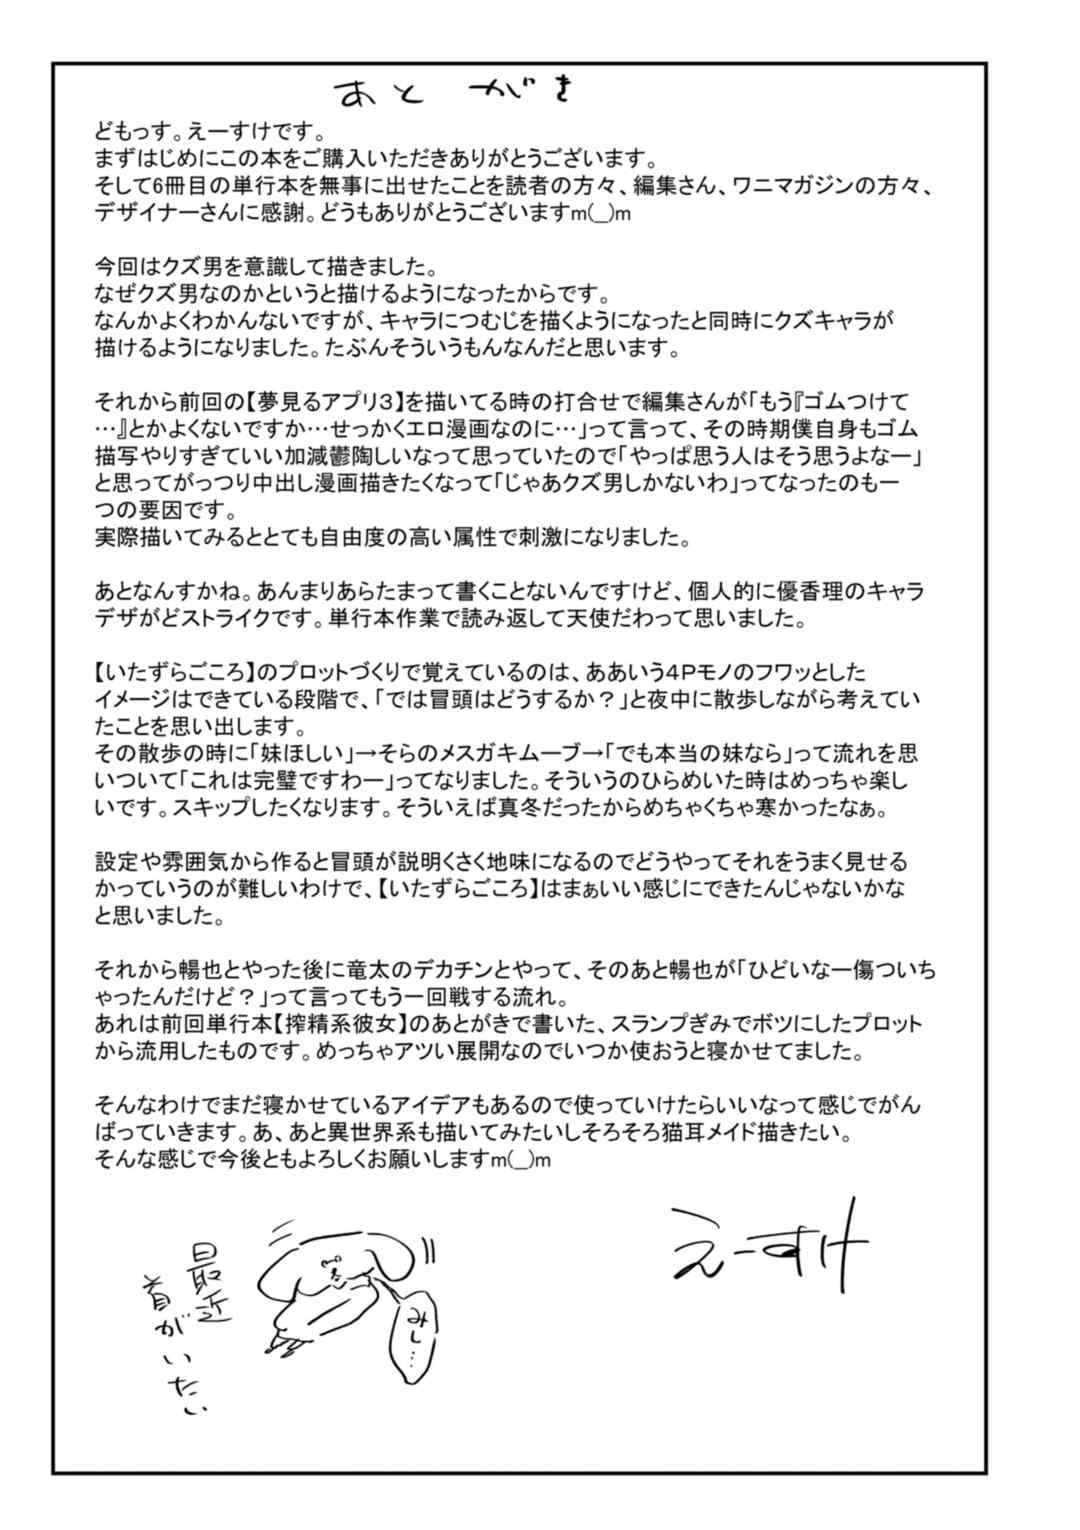 あとがき
どもっす。えーすけです。
まずはじめにこの本をご購入いただきありがとうございます。
そして6冊目の単行本を無事に出せたことを読者の方々、編集さん、ワニマガジンの方々、
デザイナーさんに感謝。どうもありがとうございますm(__)m
今回はクズ男を意識して描きました。
なぜクズ男なのかというと描けるようになったからです。
なんかよくわかんないですが、キャラにつむじを描くようになったと同時にクズキャラが
描けるようになりました。たぶんそういうもんなんだと思います。
それから前回の【夢見るアプリ３】を描いてる時の打合せで編集さんが「もう『ゴムつけて
…』とかよくないですか…せっかくエロ漫画なのに…」って言って、その時期僕自身もゴム
描写やりすぎてていい加減鬱陶しいなって思っていたので「やっぱ思う人はそう思うよなー」
と思ってがっつり中出し漫画描きたくなって「じゃあクズ男しかないわ」ってなったのも一
つの要因です。
実際描いてみるととても自由度の高い属性で刺激になりました。
あとなんすかね。あんまりあらたまって書くことないんですけど、個人的に優香理のキャラ
デザがどストライクです。単行本作業で読み返して天使だわって思いました。
【いたずらごころ】のプロットづくりで覚えているのは、ああいう４Ｐモノのフワッとした
イメージはできている段階で、「では冒頭はどうするか？」と夜中に散歩しながら考えてい
たことを思い出します。
その散歩の時に「妹ほしい」→そらのメスガキムーブ→「でも本当の妹なら」って流れを思
いついて「これは完璧ですわー」ってなりました。そういうのひらめいた時はめっちゃ楽し
いです。スキップしたくなります。そういえば真冬だったからめちゃくちゃ寒かったなぁ。
設定や雰囲気から作ると冒頭が説明くさく地味になるのでどうやってそれをうまく見せる
かっていうのが難しいわけで、【いたずらごころ】はまぁいい感じにできたんじゃないかな
と思いました。
それから暢也とやった後に竜太のデカチンとやって、そのあと暢也が「ひどいなー傷ついち
ゃったんだけど？」って言ってもう一回戦する流れ。
あれは前回単行本【搾精系彼女】のあとがきで書いた、スランプぎみでボツにしたプロット
から流用したものです。めっちゃアツい展開なのでいつか使おうと寝かせてました。
そんなわけでまだ寝かせているアイデアもあるので使っていけたらいいなって感じでがん
ばっていきます。あ、あと異世界系も描いてみたいしそろそろ猫耳メイド描きたい。
そんな感じで今後ともよろしくお願いしますm(__)m
えーすけ
最近
首がいたい
みし…